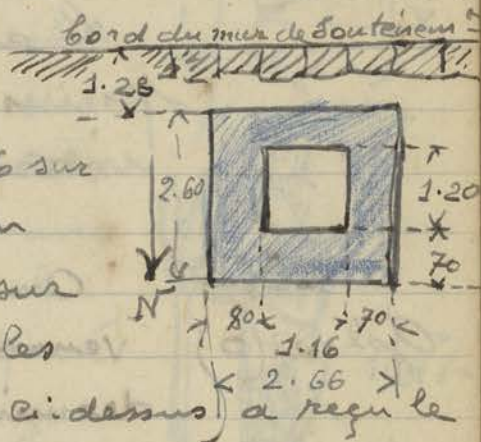 Bord du mur de Soutènem
1.28
6 sur
2.60
1.20
n
70
sur
N
80
70
les
1.16
2.66
ci-dessus) a reçu le